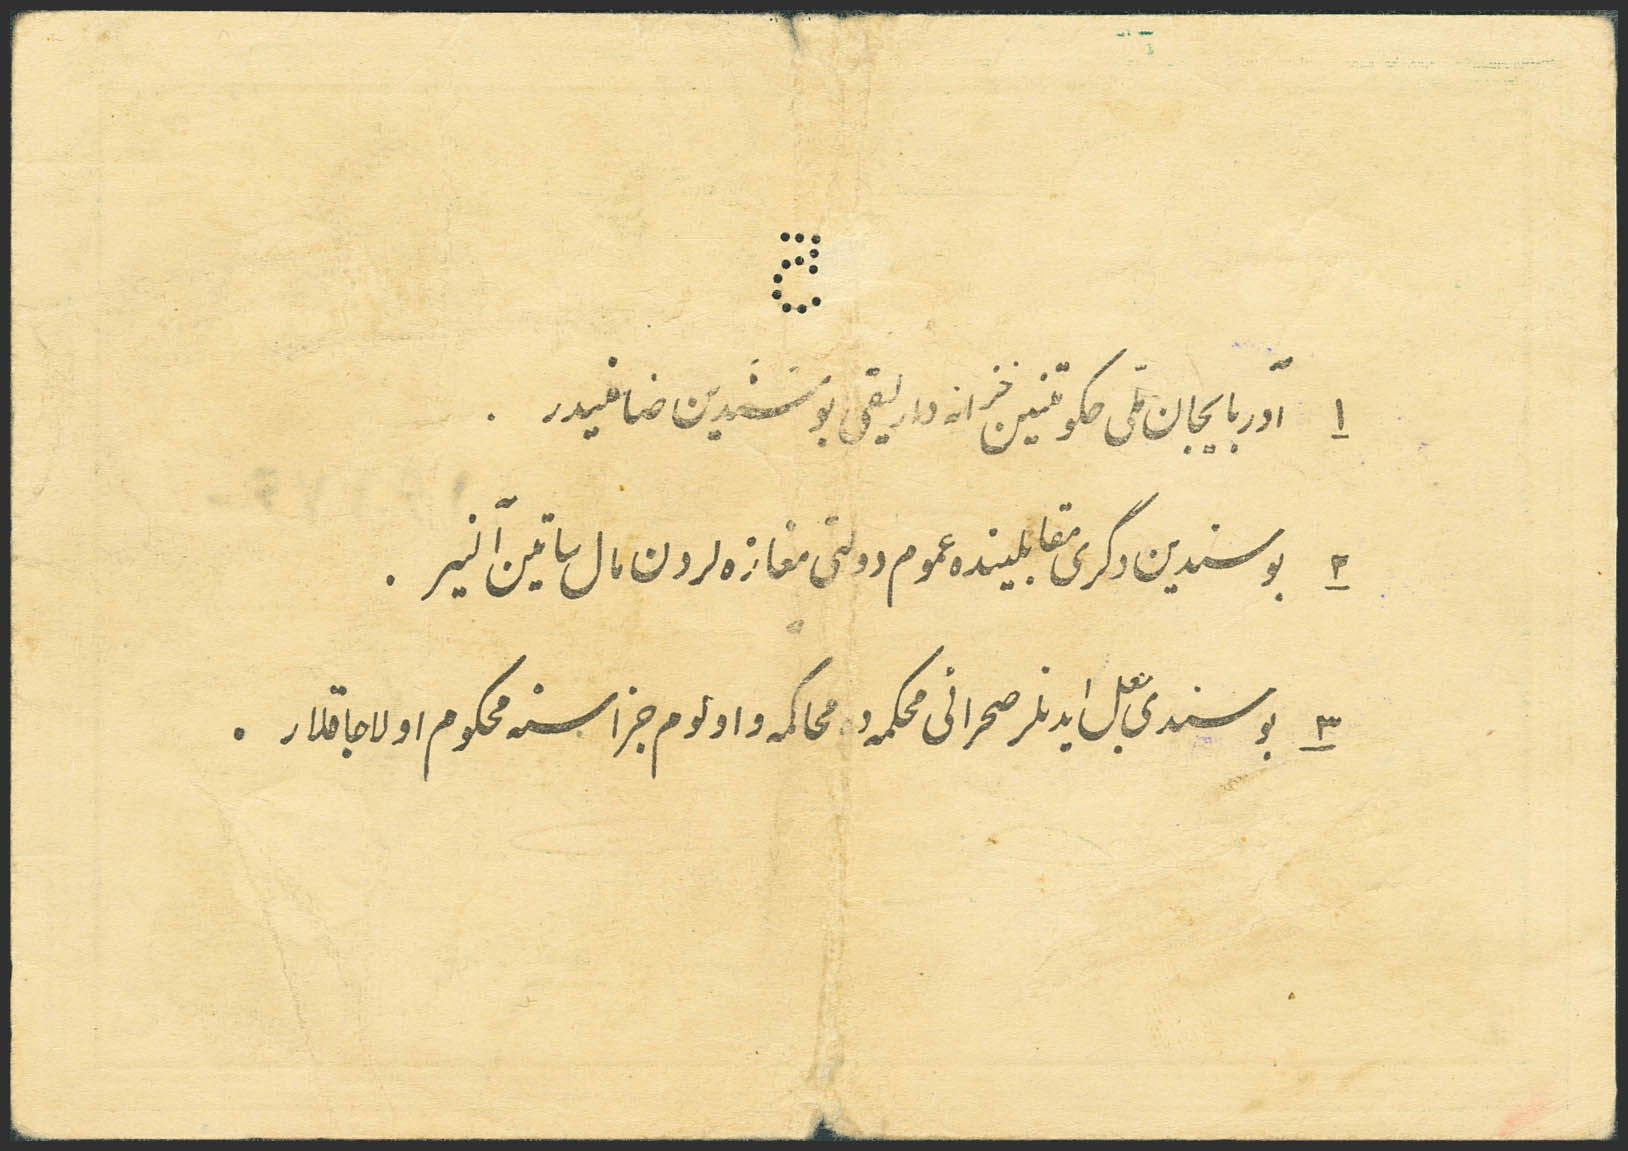 ۱ آذربایجان ملی حکومتینین خزانه دارلیقی بو سندین ضامنیدر .
۲ بو سندین دگری مقابلینده عموم دولتی مغازه لردن مال ساتین آلنیر .
۳ بو سندی بقل ایدنلر صحرائی محکمه ده محاکمه و اولوم جزاسنه محکوم اولاجاقلار .